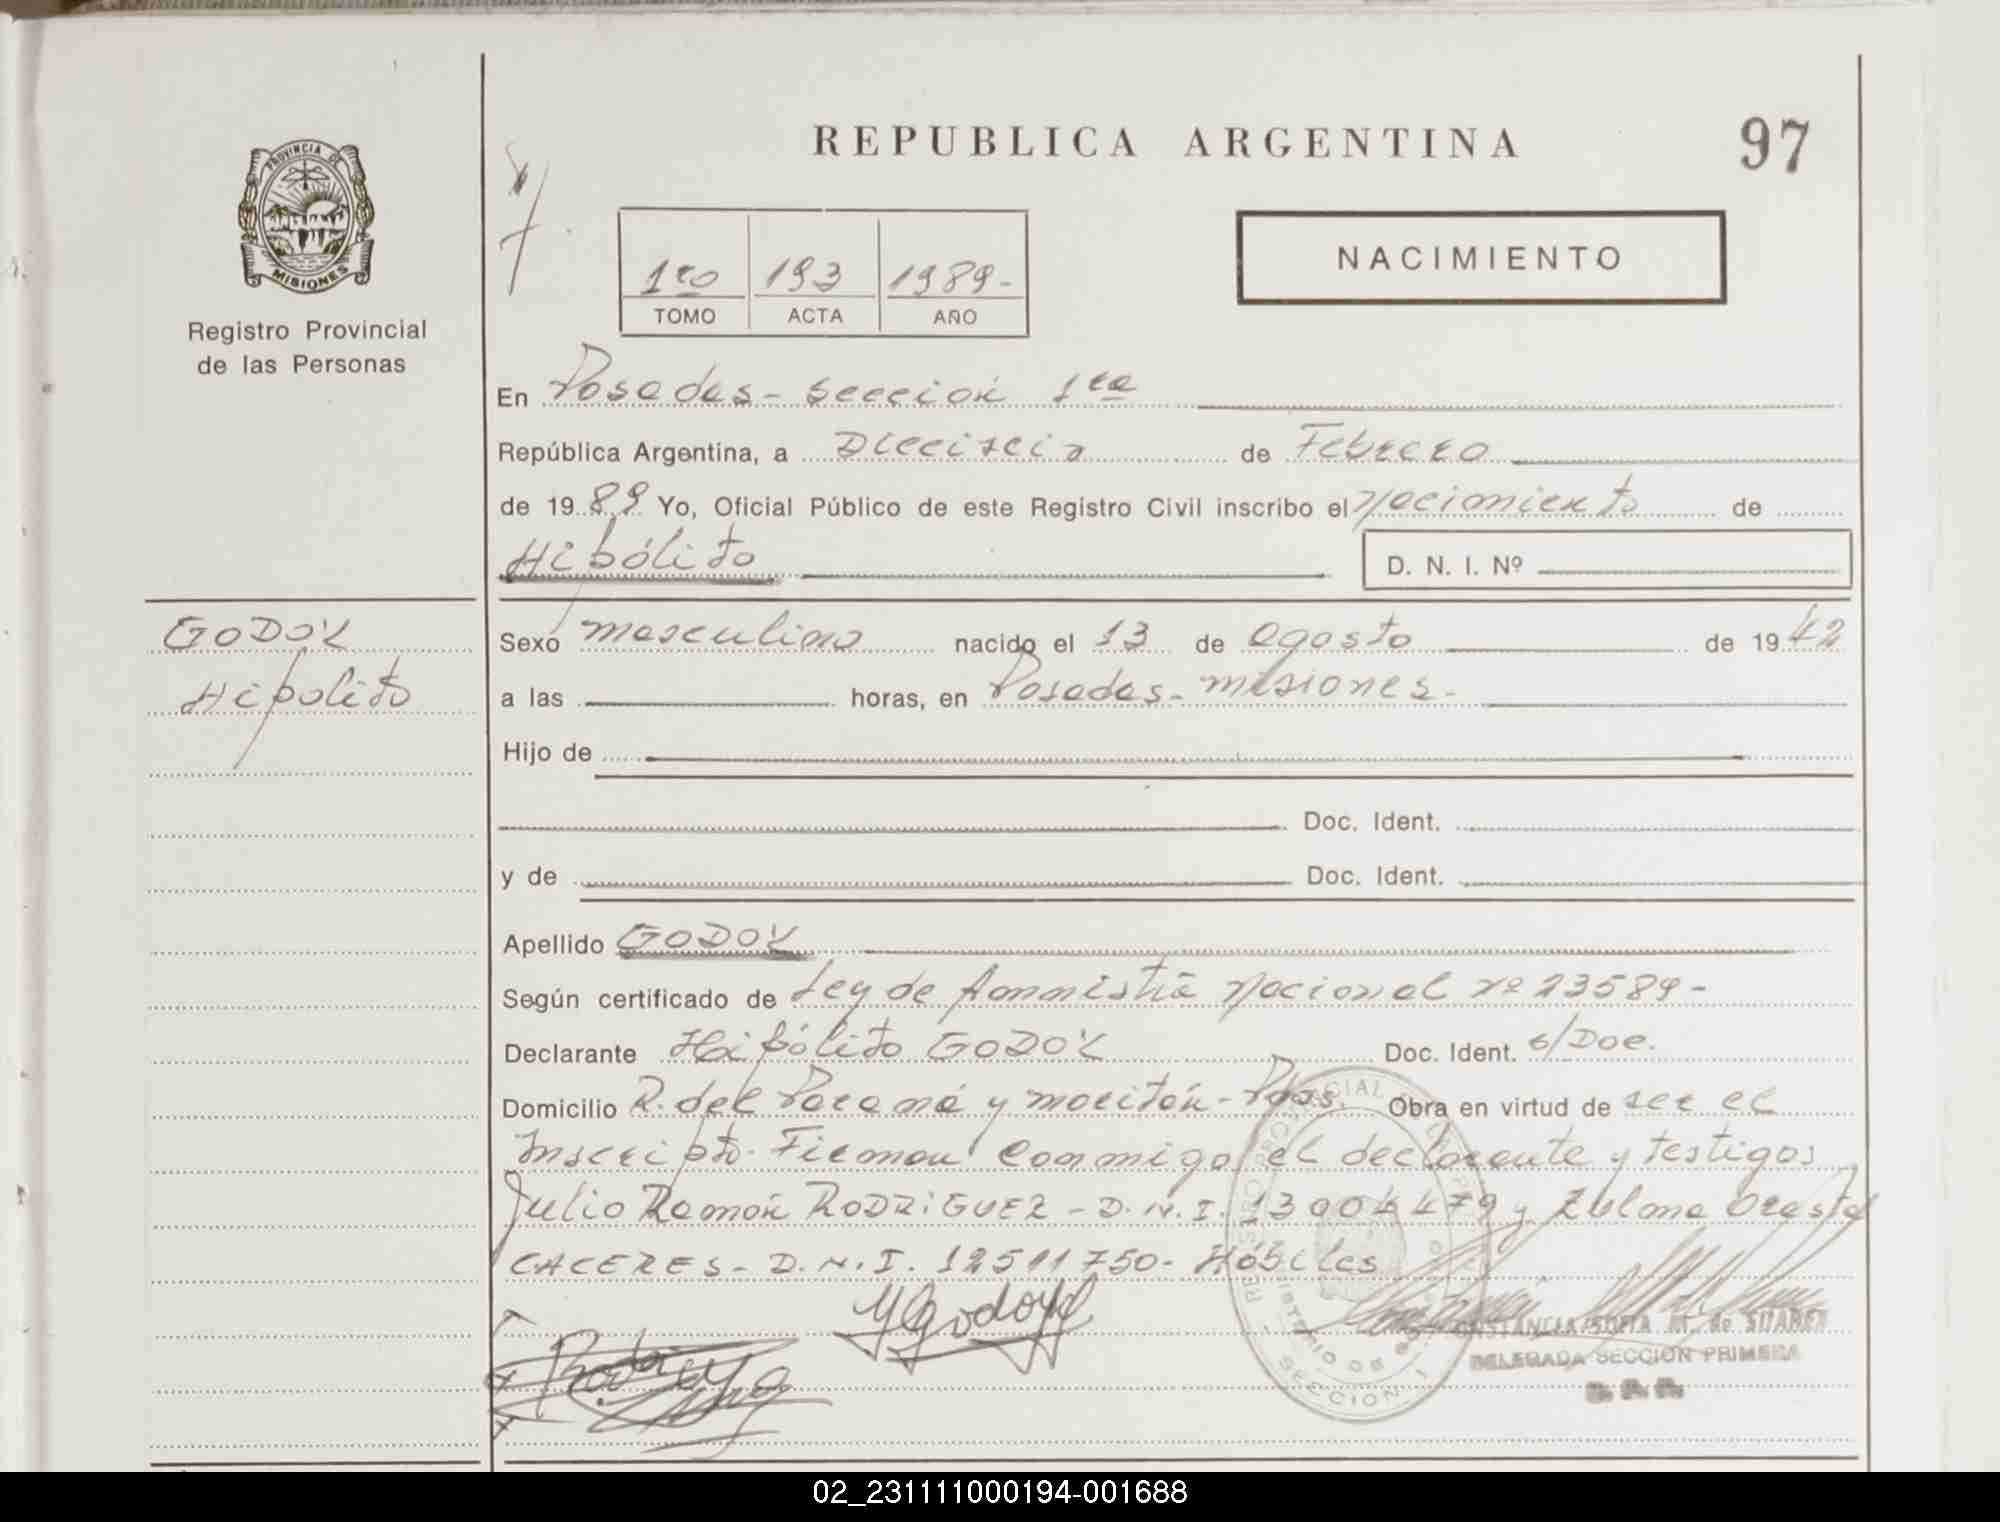 REPUBLICA ARGENTINA
97
PROVINCIA DE
MISIONES
Registro Provincial
de las Personas
1ro 193 1989-
TOMO ACTA AÑO
NACIMIENTO
En Posadas - Sección 1ra
República Argentina, a Dieciseis de Febrero
de 1989 Yo, Oficial Público de este Registro Civil inscribo el Nacimiento de
Hipólito
D. N. I. Nº
GODOY
Hipolito
Sexo masculino nacido el 13 de agosto de 1942
a las horas, en Posadas - misiones -
Hijo de
Doc. Ident.
y de Doc. Ident.
Apellido GODOY
Según certificado de Ley de Ammistia Nacional nº 23589 -
Declarante Hipólito GODOY Doc. Ident. s/Doc.
Domicilio R. del Paraná y moritán - Pdas. Obra en virtud de ser el
Inscripto. Firman conmigo el declarante y testigos
Julio Ramón RODRIGUEZ - D.N.I. 13004479 y Zulma
CACERES - D.N.I. 12511750 - Hábiles
HGodoy
SECCION 1
CONSTANCIA SOFIA M. de SUAREZ
DELEGADA SECCION PRIMERA
02_231111000194-001688